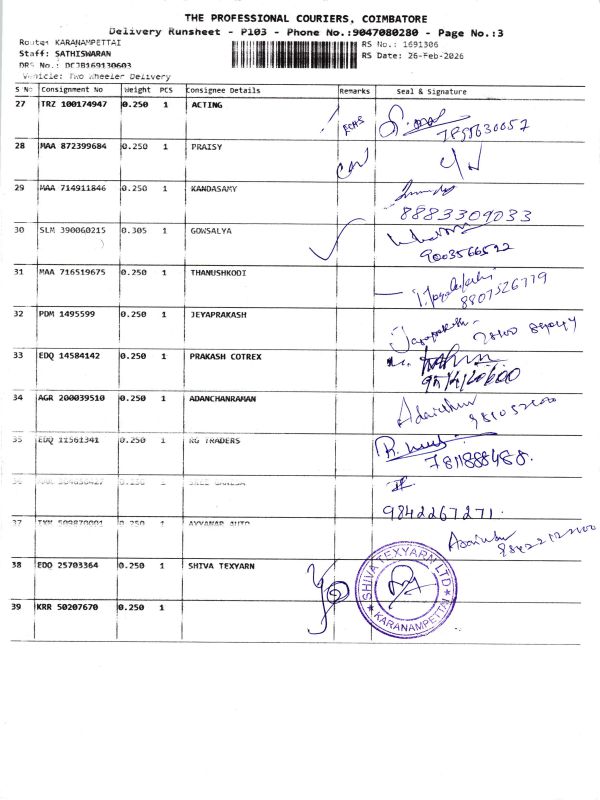 THE PROFESSIONAL COURIERS, COIMBATORE
Delivery Runsheet - P103 - Phone No.:9047080280 - Page No.:3
Route: KARANAMPETTAI
RS No.: 1691306
Staff: SATHISWARAN
RS Date: 26-Feb-2026
DRS No.: DCJB169130603
Vehicle: Two Wheeler Delivery
S No Consignment No Weight PCS Consignee Details Remarks Seal & Signature
27 TRZ 100174947 0.250 1 ACTING
28 MAA 872399684 0.250 1 PRAISY
29 MAA 714911846 0.250 1 KANDASAMY
8883309033
30 SLM 390060215 0.305 1 GOWSALYA
9003566522
31 MAA 716519675 0.250 1 THANUSHKODI
8807526779
32 PDM 1495599 0.250 1 JEYAPRAKASH
Jayaprakash
33 EDQ 14584142 0.250 1 PRAKASH COTREX
34 AGR 200039510 0.250 1 ADANCHANRAMAN
35 EDQ 11561341 0.250 1 RG TRADERS
7811888488.
9842267271.
37 AYYANAR AUTO
38 EDQ 25703364 0.250 1 SHIVA TEXYARN
SHIVA TEXYARN LTD
KARANAMPETTAI
39 KRR 50207670 0.250 1